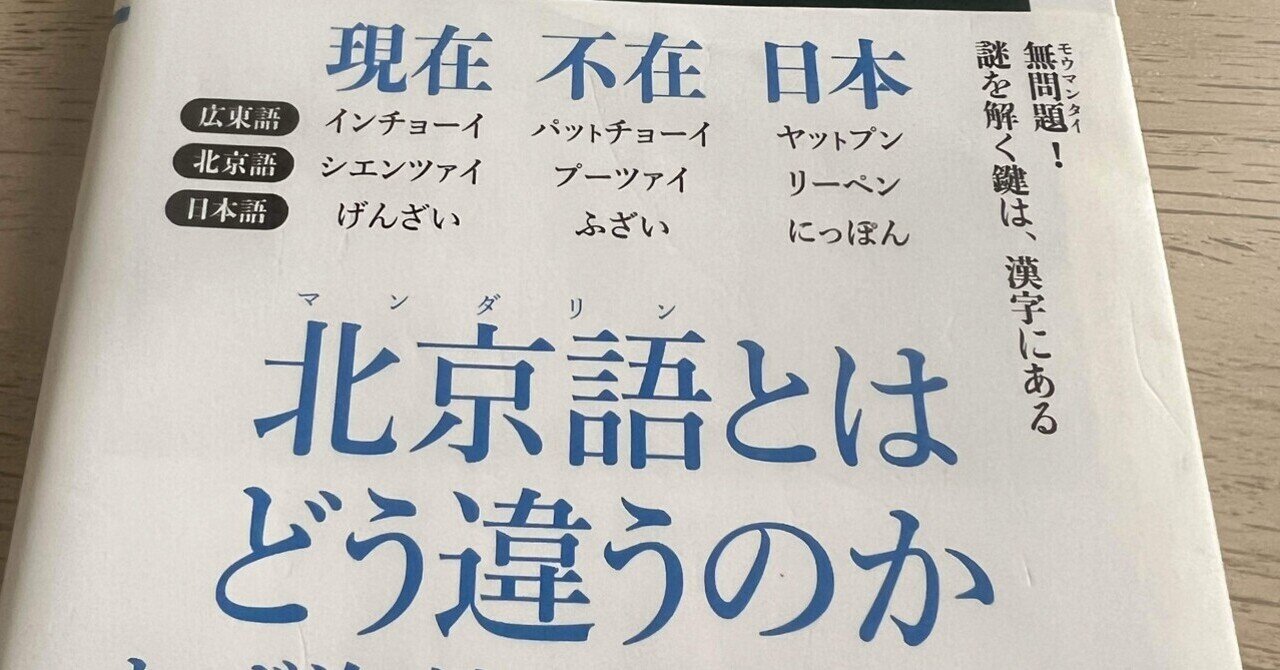 現在 不在 日本
広東語 インチョーイ パットチョーイ ヤットプン
北京語 シエンツァイ プーツァイ リーペン
日本語 げんざい ふざい にっぽん
モウマンタイ
無問題！
謎を解く鍵は、漢字にある
マンダリン
北京語とは
どう違うのか